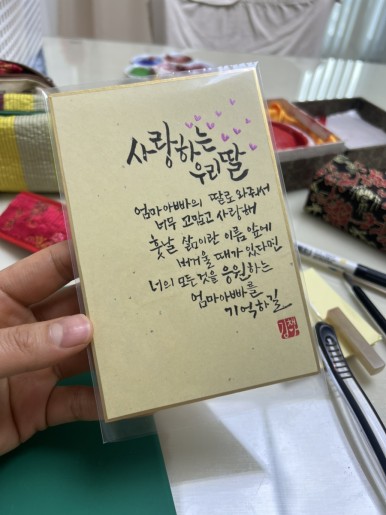 사랑하는
우리딸
엄마아빠의 딸로 와줘서
너무 고맙고 사랑해
훗날 삶이란 이름 앞에
버거울 때가 있다면
너의 모든것을 응원하는
엄마아빠를
기억하길